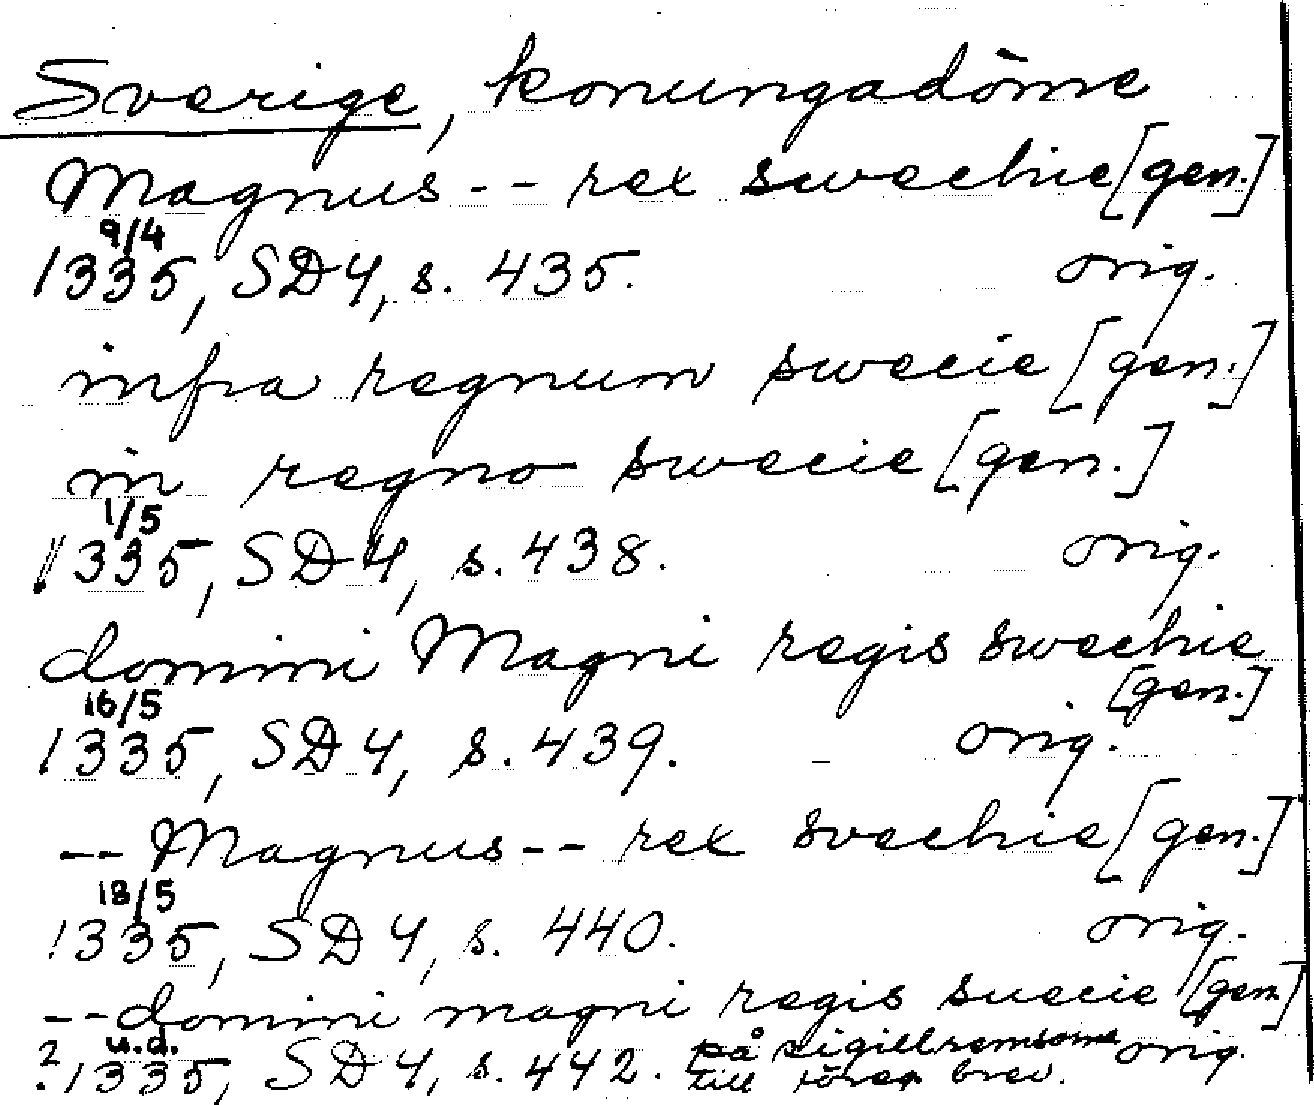 Sverige, konungadöme
Magnus -- rex swechie [gen.]
9/4
1335, SD 4, s. 435. orig.
infra regnum swecie [gen.]
in regno swecie [gen.]
1/5
1335, SD 4, s. 438. orig.
domini Magni regis swechie
[gen.]
16/5
1335, SD 4, s. 439. orig.
-- Magnus -- rex svechie [gen.]
18/5
1335, SD 4, s. 440. orig.
-- domini magni regis suecie [gen.]
u.d.
? 1335, SD 4, s. 442. på sigillremsorna orig.
till föreg brev.